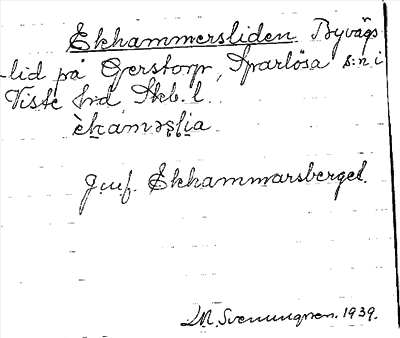 Ekhammersliden. Byvägs
-lid på Gerstorp, Sparlösa s:n i
Viste hrd, Skb. l.
Jmf. Ekhammarsberget.
M. Svenungson. 1939.